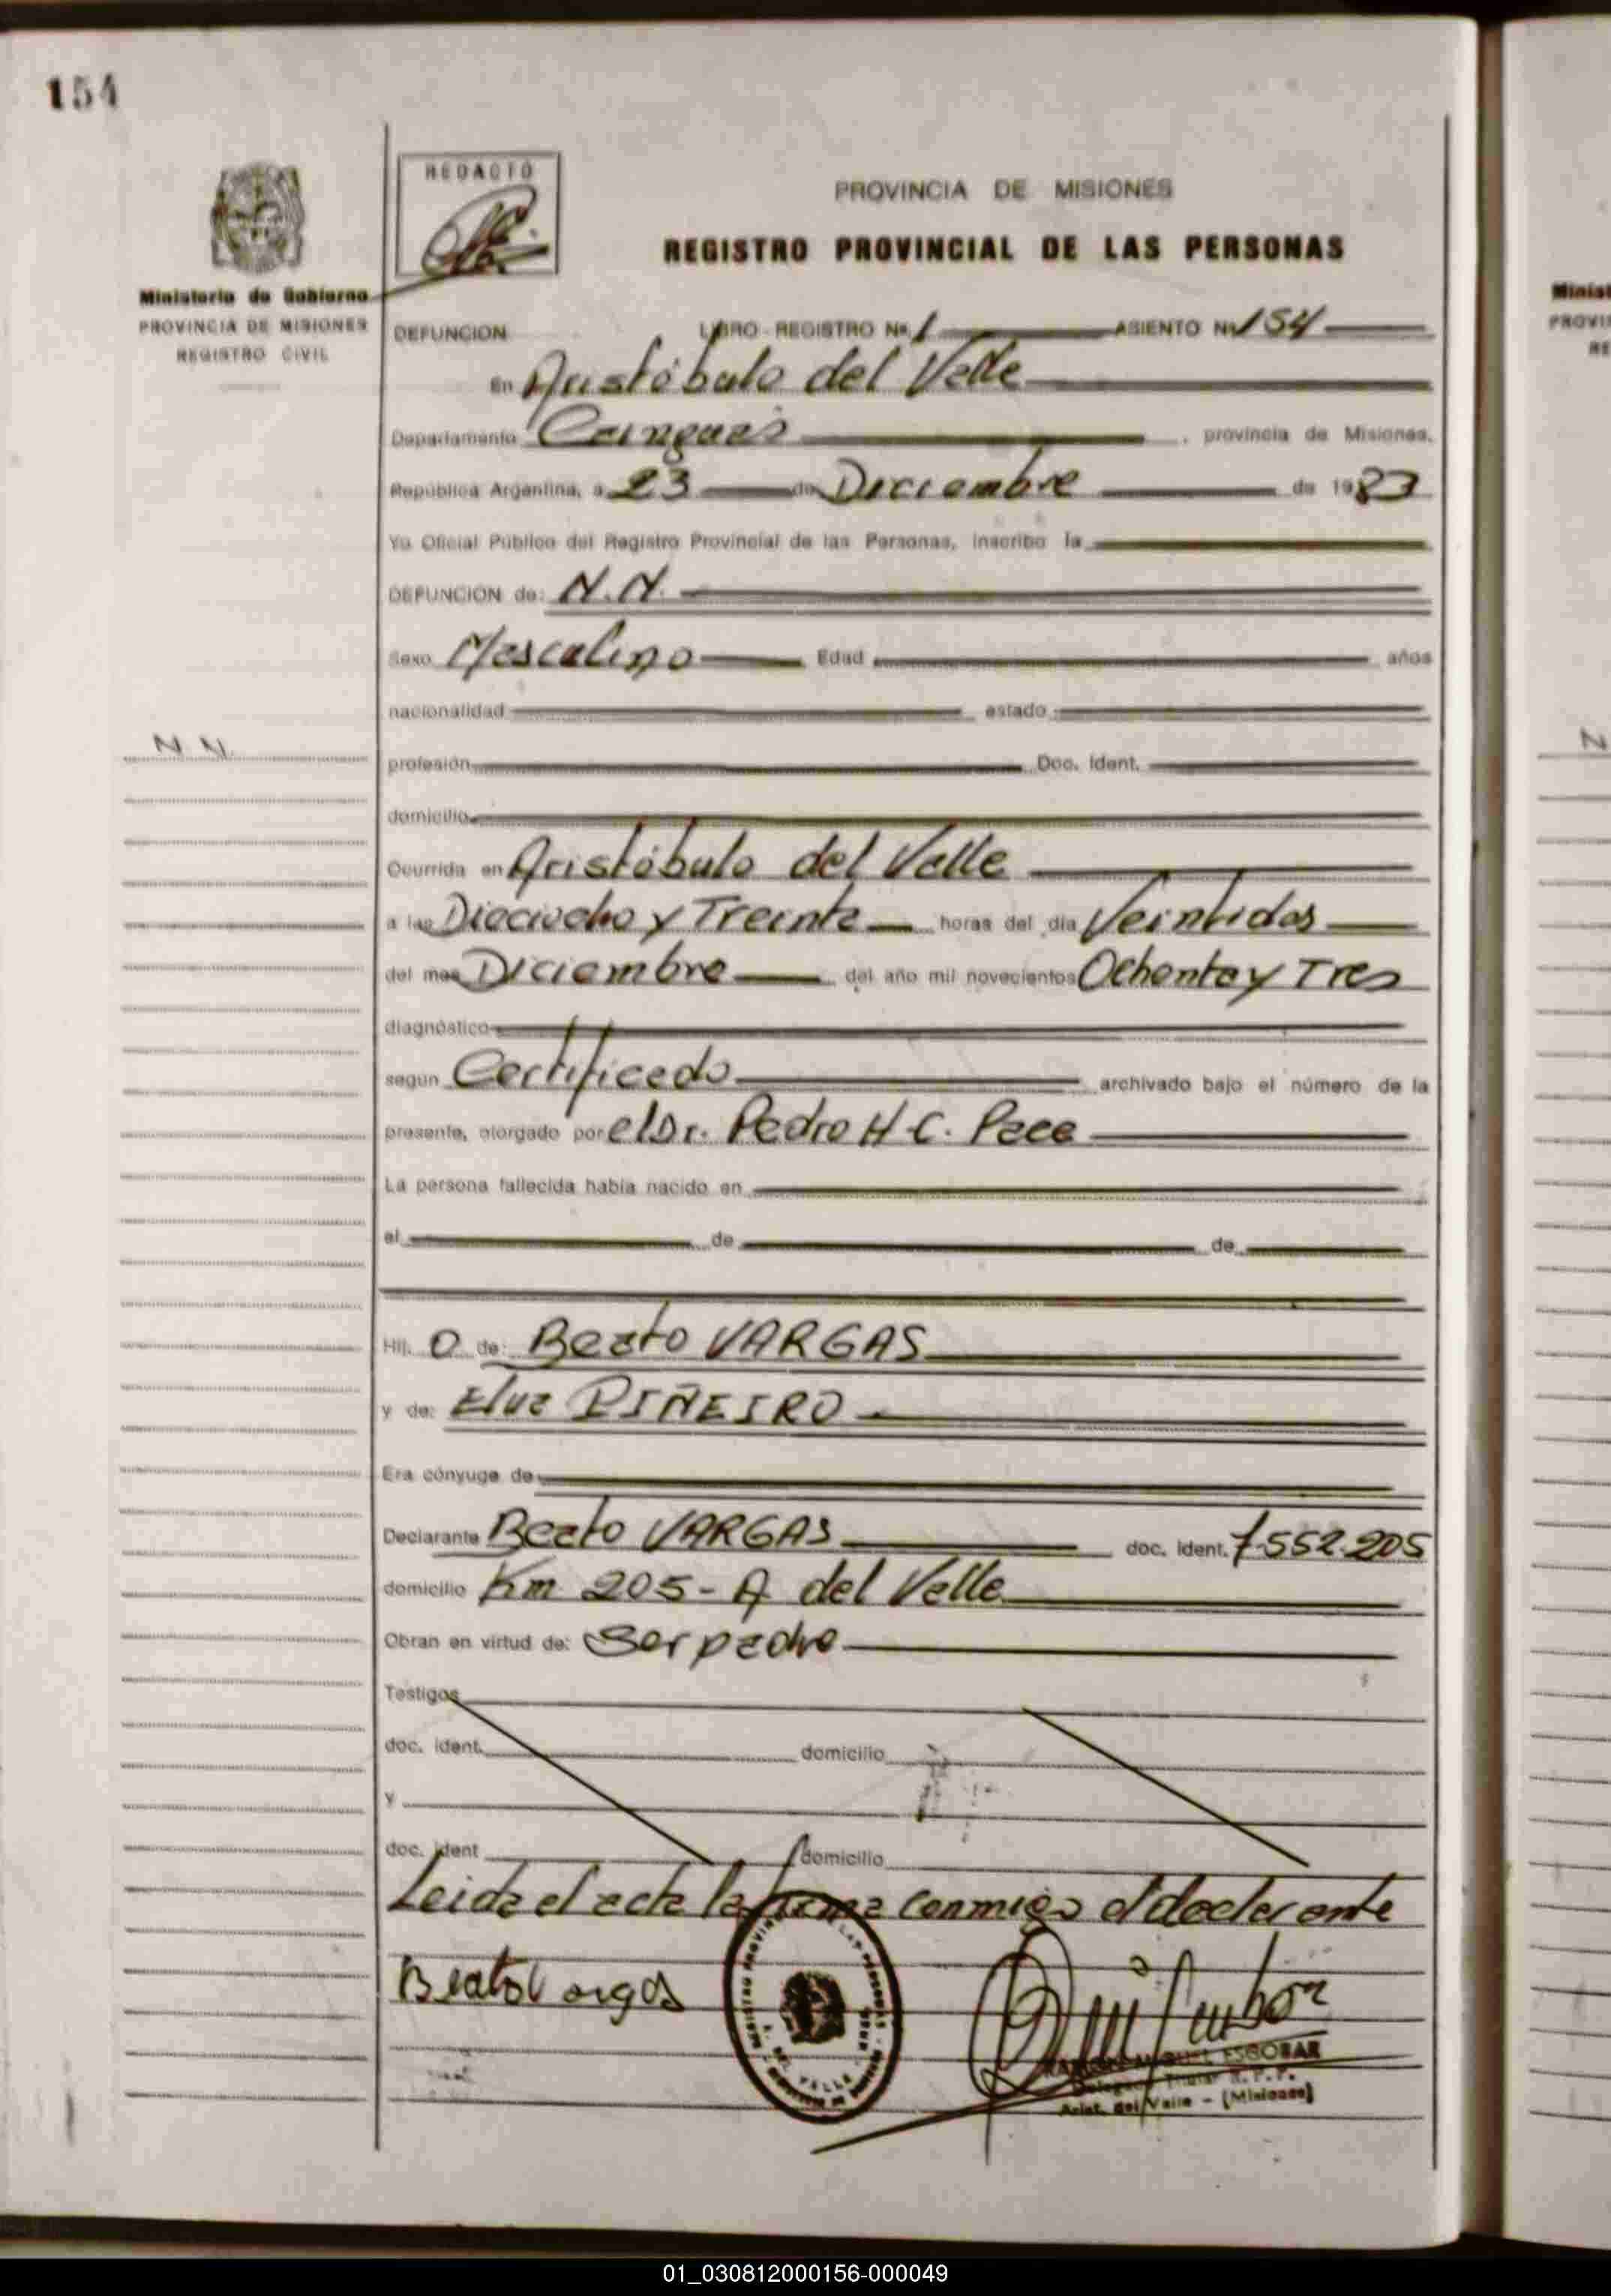 154
REDACTO
PROVINCIA DE MISIONES
REGISTRO PROVINCIAL DE LAS PERSONAS
Ministerio de Gobierno
PROVINCIA DE MISIONES
REGISTRO CIVIL
DEFUNCION LIBRO - REGISTRO No. 1 ASIENTO No 154
En Aristóbulo del Valle
Departamento Cainguás, provincia de Misiones,
República Argentina, a 23 de Diciembre de 1983
Yo Oficial Público del Registro Provincial de las Personas, inscribo la
DEFUNCION de: N.N.
Sexo Masculino Edad años
nacionalidad estado
N. N.
profesión Doc. Ident.
domicilio
Ocurrida en Aristóbulo del Valle
a las Dieciocho y Treinta horas del día Veintidos
del mes Diciembre del año mil novecientos Ochenta y Tres
diagnóstico
según Certificado archivado bajo el número de la
presente, otorgado por el Dr. Pedro H. C. Pace
La persona fallecida había nacido en
el de de
Hij o de: Beato VARGAS
y de: Elva PIÑEIRO
Era cónyuge de
Declarante Beato VARGAS doc. ident. 7.552.205
domicilio Km 205 - A del Valle
Obran en virtud de: Ser padre
Testigos
doc. ident. domicilio
y
doc. ident domicilio
Leida el acta la firma conmigo el declarante
Beato Vargas
ESCOBAR
Arist. del Valle - (Misiones)
Minist
PROVI
RE
N
01_030812000156-000049